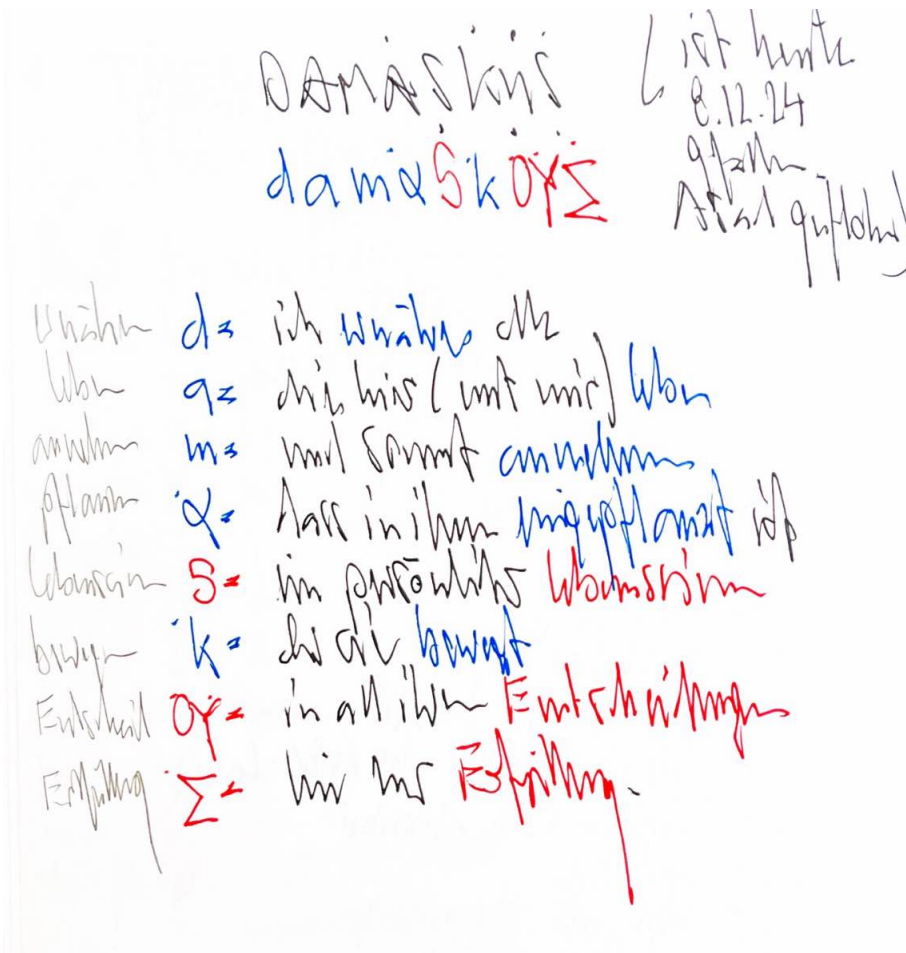 DAMASKUS
(ist heute
8.12.24
gefallen
Assad geflohen)
damaSkOYΣ
ernähren d= ich ernähre alle
leben a= die hier (mit mir) leben
annehmen m= und somit annehmen
pflanzen α= dass in ihnen eingepflanzt ist
Lebenssinn S= ein persönlicher Lebenssinn
bewegen k= der sie bewegt
Entscheid OY= in all ihren Entscheidungen
Erfüllung Σ= hin zur Erfüllung.